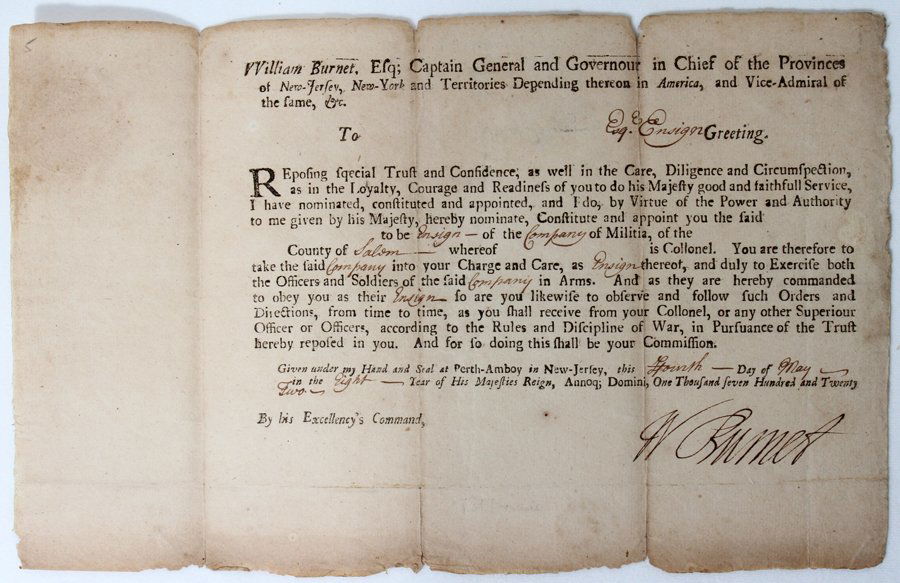 5
William Burnet, Esq; Captain General and Governour in Chief of the Provinces
of New-Jersey, New-York and Territories Depending thereon in America, and Vice-Admiral of
the same, &c.
To Esqr. Ensign Greeting.
REposing sqecial Trust and Confidence, as well in the Care, Diligence and Circumspection,
as in the Loyalty, Courage and Readiness of you to do his Majesty good and faithfull Service,
I have nominated, constituted and appointed, and I do, by Virtue of the Power and Authority
to me given by his Majesty, hereby nominate, Constitute and appoint you the said
to be Ensign of the Company of Militia, of the
County of Salem whereof is Collonel. You are therefore to
take the said Company into your Charge and Care, as Ensign thereof, and duly to Exercise both
the Officers and Soldiers of the said Company in Arms. And as they are hereby commanded
to obey you as their Ensign so are you likewise to observe and follow such Orders and
Directions, from time to time, as you shall receive from your Collonel, or any other Superiour
Officer or Officers, according to the Rules and Discipline of War, in Pursuance of the Trust
hereby reposed in you. And for so doing this shall be your Commission.
Given under my Hand and Seal at Perth-Amboy in New-Jersey, this Fourth Day of May
in the Eight Year of His Majesties Reign, Annoq; Domini, One Thousand seven Hundred and Twenty
Two
By his Excellency's Command,
W Burnet